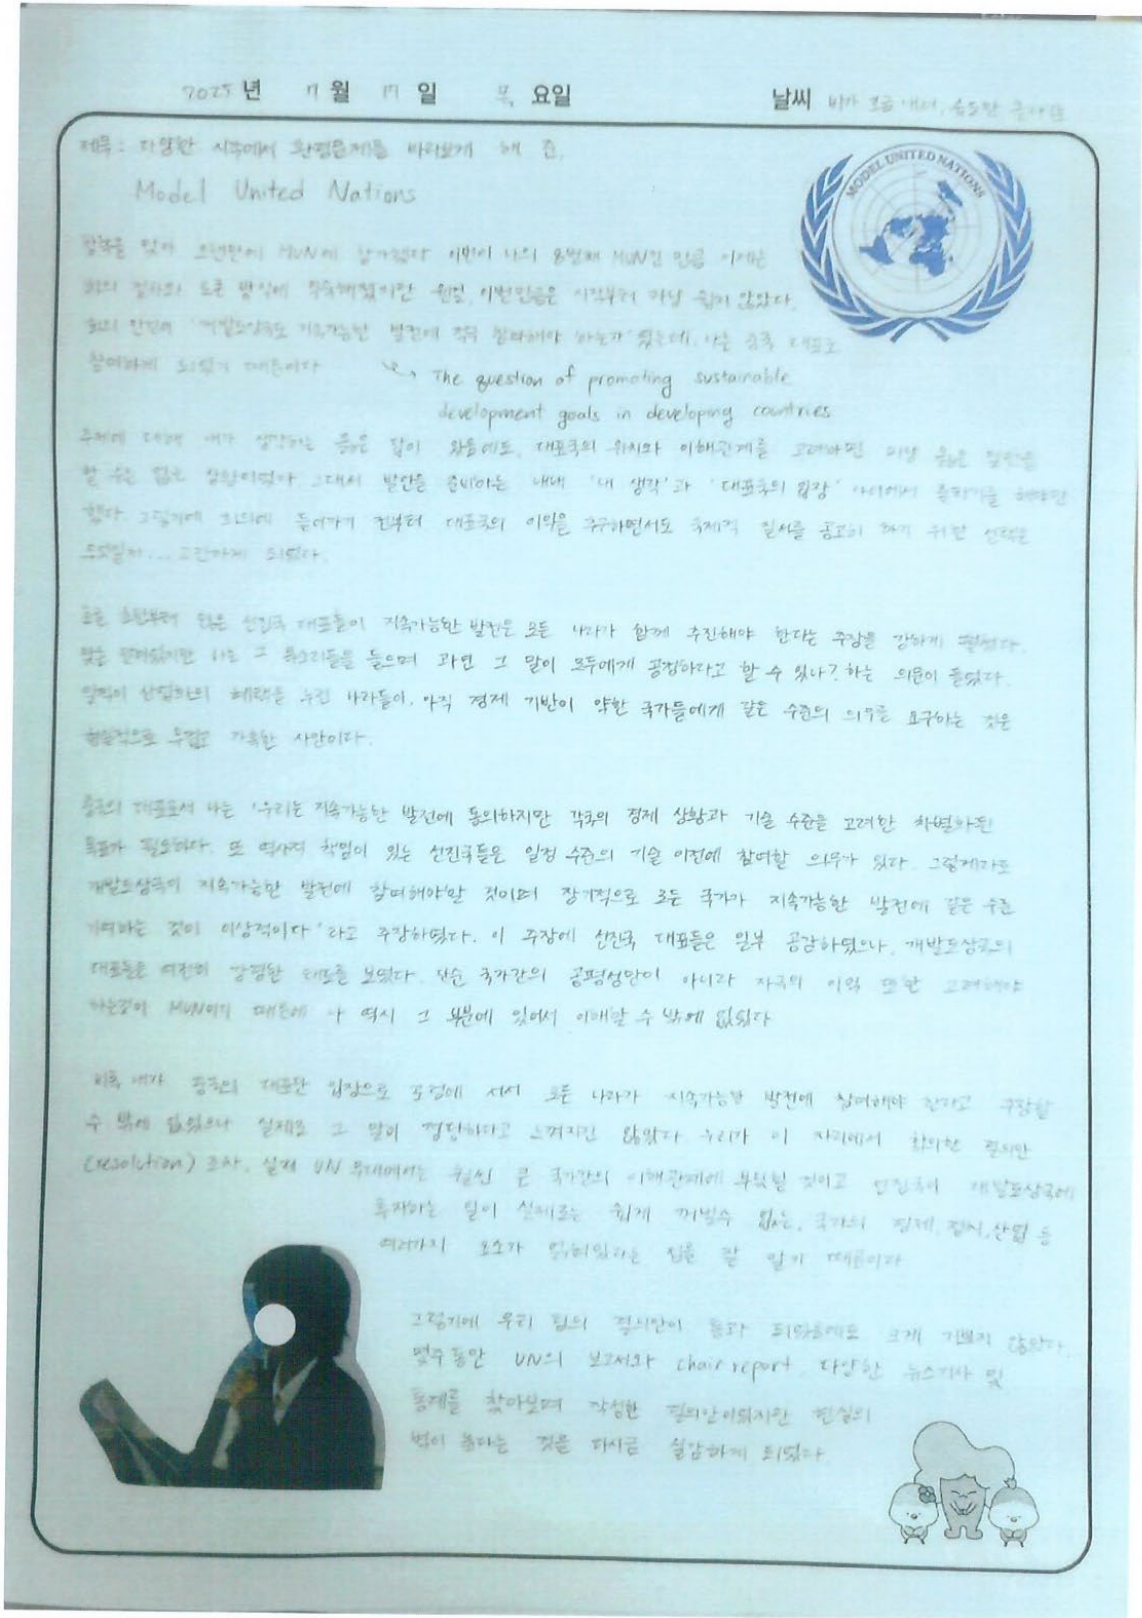 2025 년 7 월 17 일 목 요일 날씨 비가 조금 내려, 습도만
제목: 다양한 시각에서 환경문제를 바라보게 해 준,
Model United Nations
MODEL UNITED NATIONS
방학을 맞아 오랜만에 MUN에 참가했다 이번이 나의 8번째 MUN인 만큼 이제는
회의 절차와 토론 방식에 익숙해졌지만 이번만큼은 시작부터 마냥 쉽지 않았다.
회의 안건이 '개발도상국도 지속가능한 발전에 적극 참여해야 하는가' 였는데, 나는 중국 대표로
참여하게 되었기 때문이다
The question of promoting sustainable
development goals in developing countries
주제에 대해 내가 생각하는 옳은 답이 있음에도, 대표국의 위치와 이해관계를 고려하면 마냥 옳은 발언을
할 수는 없는 상황이었다 그래서 발언을 준비하는 내내 '내 생각'과 '대표국의 입장' 사이에서 줄타기를 해야만
했다. 그렇기에 회의에 들어가기 전부터 대표국의 이익을 추구하면서도 국제적 질서를 공고히 하기 위한 선택은
무엇일지... 고민하게 되었다.
토론 초반부터 많은 선진국 대표들이 지속가능한 발전은 모든 나라가 함께 추진해야 한다는 주장을 강하게 펼쳤다.
맞는 말이었지만 나는 그 목소리들을 들으며 과연 그 말이 모두에게 공정하다고 할 수 있나? 하는 의문이 들었다.
일찍이 산업화의 혜택을 누린 나라들이, 아직 경제 기반이 약한 국가들에게 같은 수준의 의무를 요구하는 것은
현실적으로 무겁고 가혹한 사안이다.
중국의 대표로서 나는 '우리는 지속가능한 발전에 동의하지만 각국의 경제 상황과 기술 수준을 고려한 차별화된
목표가 필요하다. 또 역사적 책임이 있는 선진국들은 일정 수준의 기술 이전에 참여할 의무가 있다. 그렇게라도
개발도상국이 지속가능한 발전에 참여해야할 것이며 장기적으로 모든 국가가 지속가능한 발전에 같은 수준
기여하는 것이 이상적이다'라고 주장하였다. 이 주장에 선진국 대표들은 일부 공감하였으나, 개발도상국의
대표들은 여전히 강경한 태도를 보였다. 단순 국가간의 공평성만이 아니라 자국의 이익 또한 고려해야
하는것이 MUN이기 때문에 나 역시 그 부분에 있어서 이해할 수 밖에 없었다
비록 내가 중국의 대표단 입장으로 토론에 서서 모든 나라가 지속가능한 발전에 참여해야 한다고 주장할
수 밖에 없었으나 실제로 그 말이 정당하다고 느껴지진 않았다 우리가 이 자리에서 합의한 결의안
(resolution) 조차, 실제 UN 무대에서는 훨씬 큰 국가간의 이해관계에 부딪힐 것이고 선진국이 개발도상국에
투자하는 일이 실제로는 쉽게 꺼낼수 없는, 국가의 경제, 정치, 산업 등
여러가지 요소가 얽혀있다는 점을 잘 알기 때문이다
그렇기에 우리 팀의 결의안이 통과 되었음에도 크게 기쁘지 않았다.
몇주 동안 UN의 보고서와 chair report, 다양한 뉴스기사 및
통계를 찾아보며 작성한 결의안이었지만 현실의
벽이 높다는 것을 다시금 실감하게 되었다